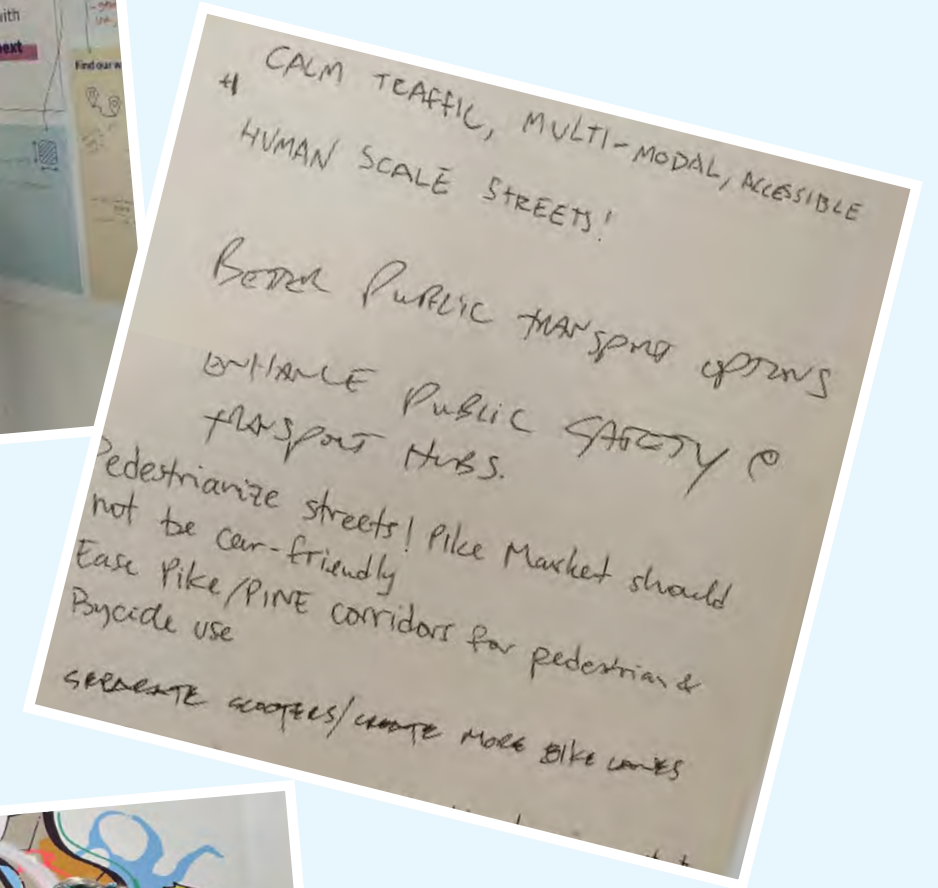 with
next
Find our w
CALM TRAFFIC, MULTI-MODAL, ACCESSIBLE
+1
HUMAN SCALE STREETS!
BETTER PUBLIC TRANSPORT OPTIONS
ENHANCE PUBLIC SAFETY @
TRANSPORT HUBS.
Pedestrianize streets! Pike Market should
not be car-friendly
Ease Pike/PINE corridors for pedestrian &
Bycicle use
SEPARATE SCOOTERS/CREATE MORE BIKE LANES